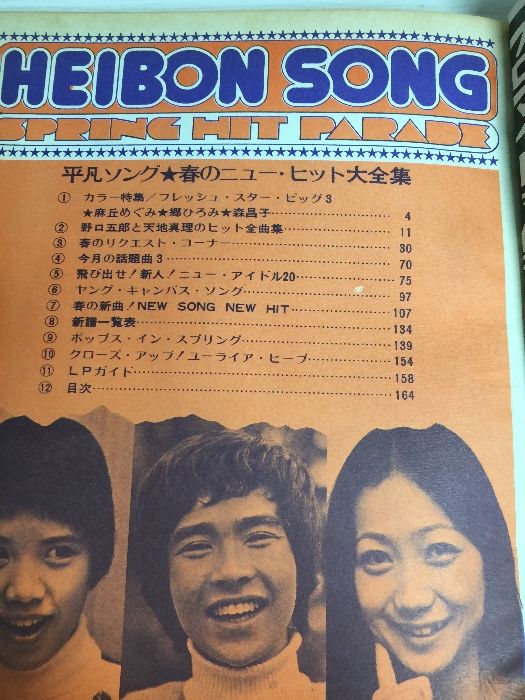 HEIBON SONG
SPRING HIT PARADE
平凡ソング★春のニュー・ヒット大全集
① カラー特集/フレッシュ・スター・ビッグ3
★麻丘めぐみ★郷ひろみ★森昌子 4
② 野口五郎と天地真理のヒット全曲集 11
③ 春のリクエスト・コーナー 30
④ 今月の話題曲3 70
⑤ 飛び出せ!新人!ニュー・アイドル20 75
⑥ ヤング・キャンパス・ソング 97
⑦ 春の新曲!NEW SONG NEW HIT 107
⑧ 新譜一覧表 134
⑨ ポップス・イン・スプリング 139
⑩ クローズ・アップ!ユーライア・ヒープ 154
⑪ LPガイド 158
⑫ 目次 164